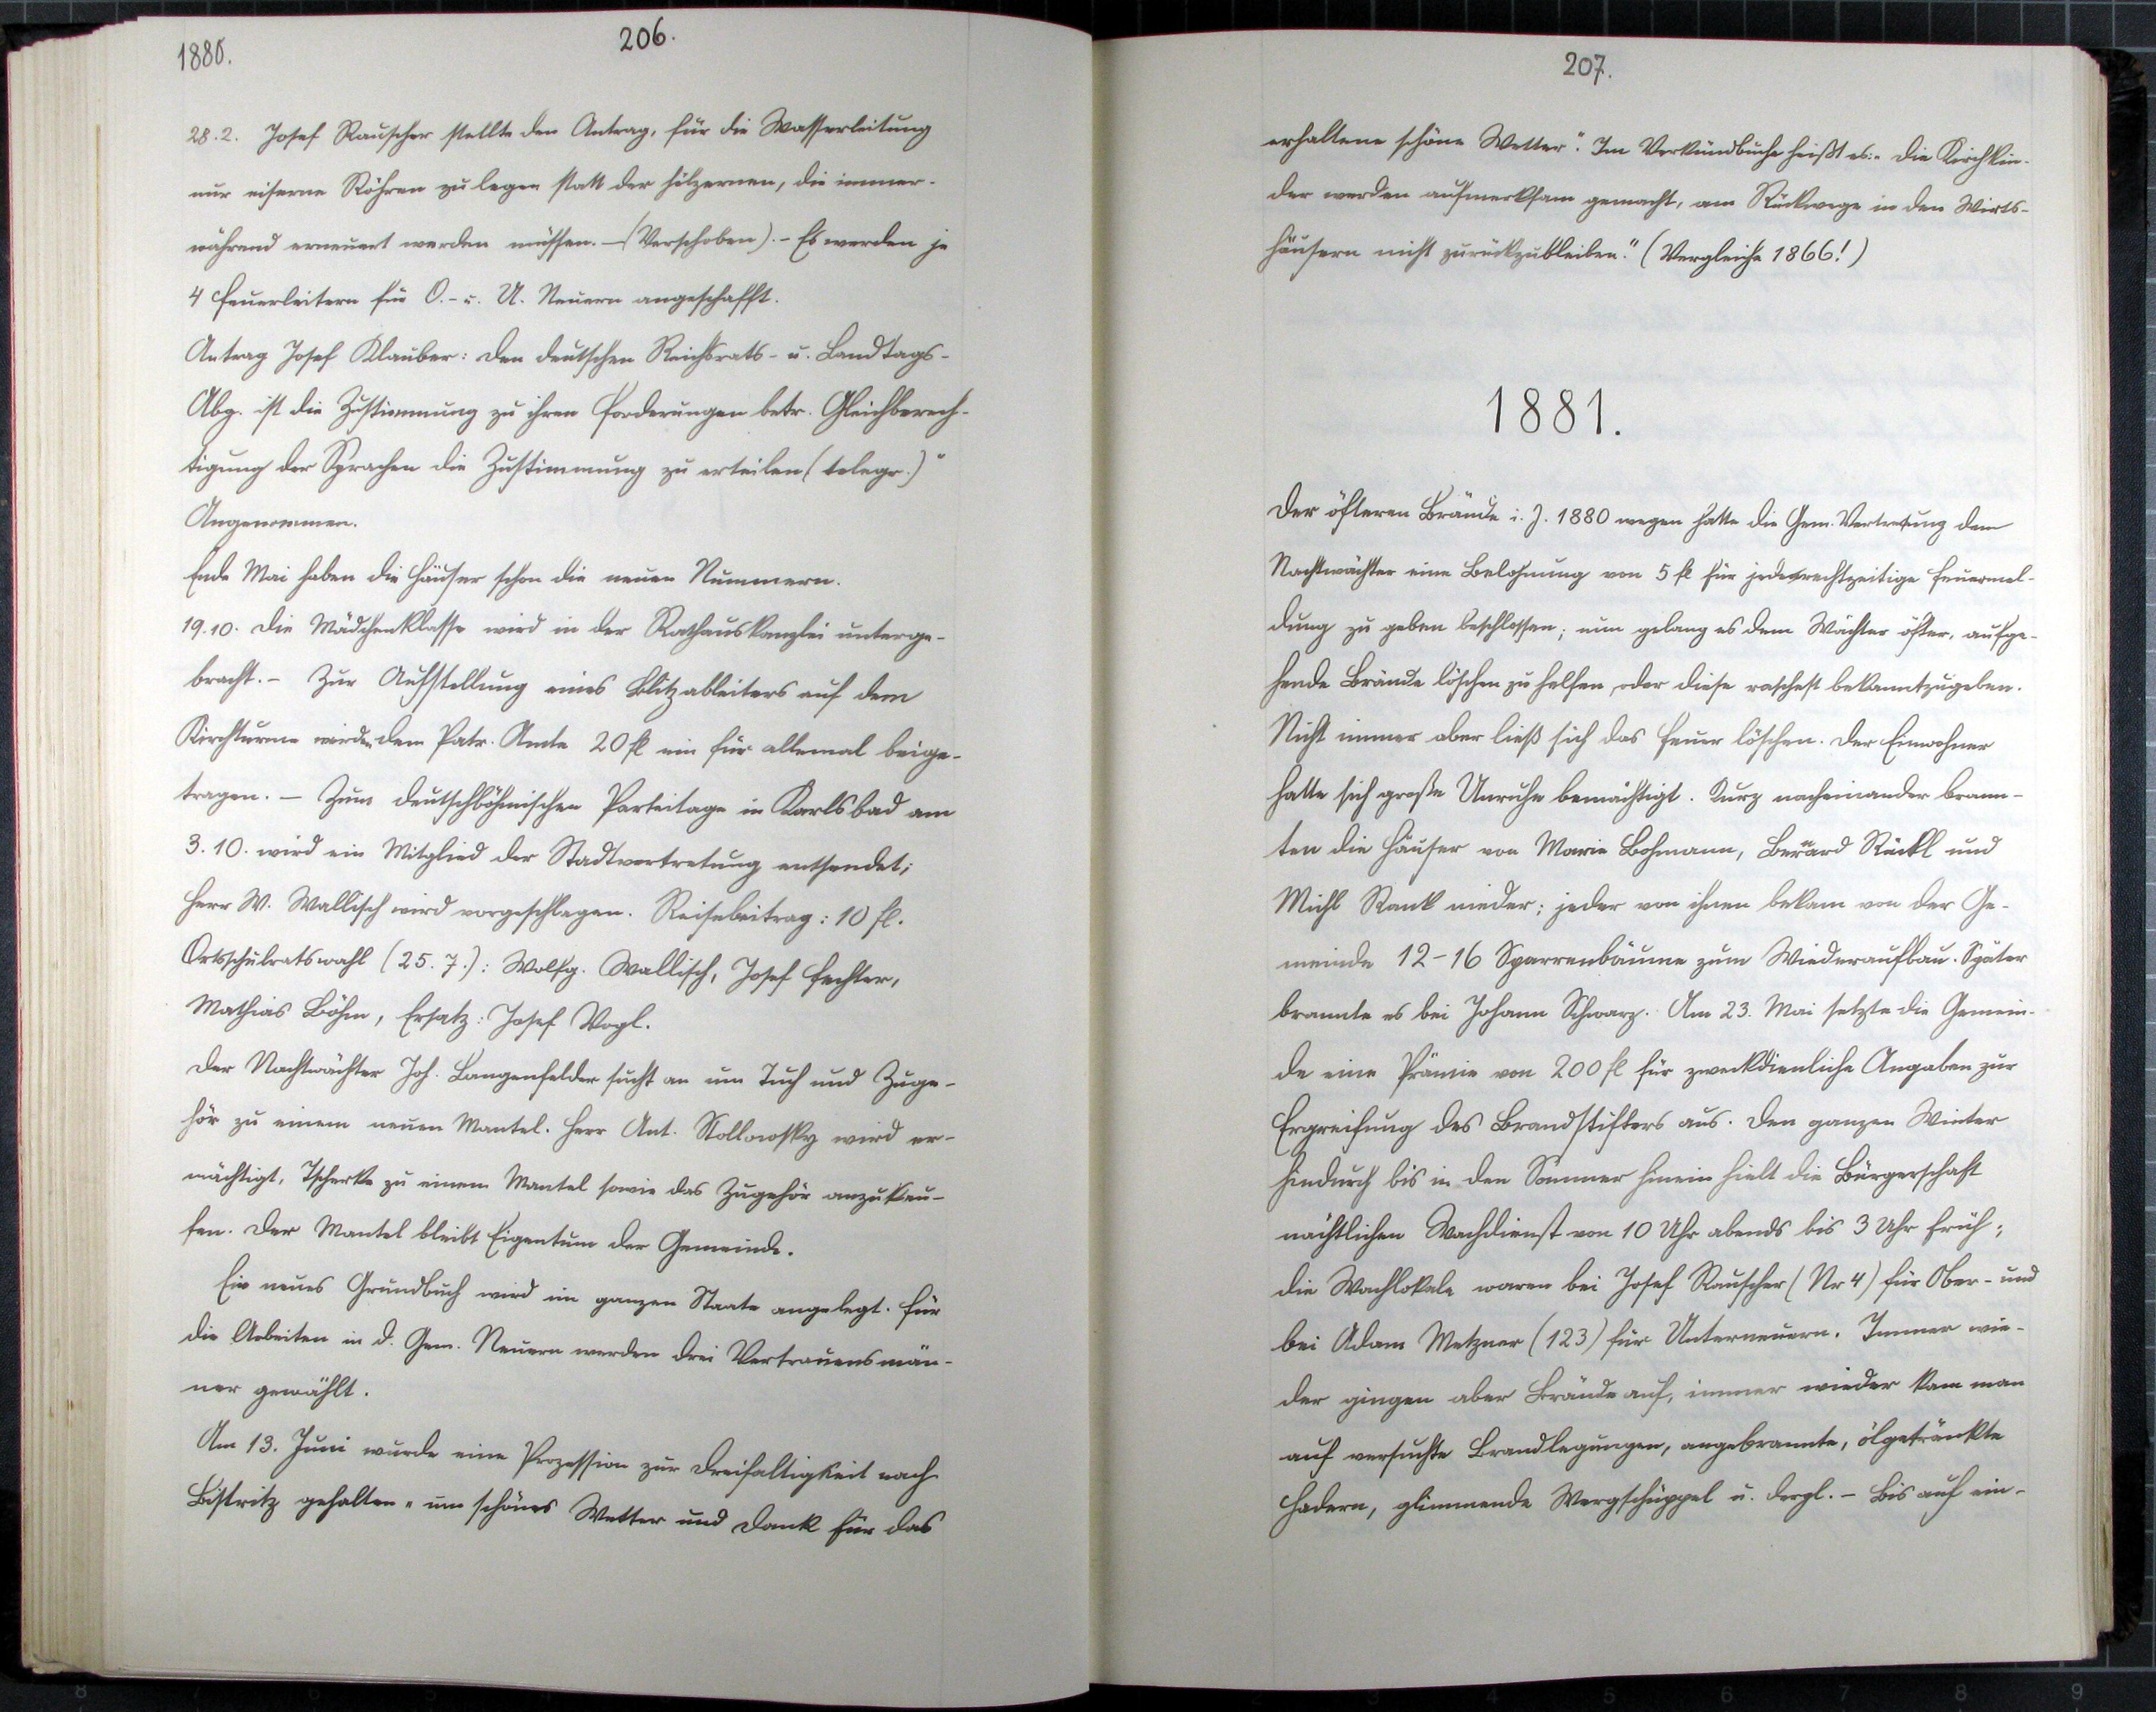 1880.
206.
28.2. Josef Rauscher stellte den Antrag, für die Wasserleitung
nur eiserne Röhren zu legen statt der hölzernen, die immer-
während erneuert werden müssen. – (Verschoben). – Es werden je
4 Feuerleitern für O.- u. U. Neuern angeschafft.
Antrag Josef Klauber: Den deutschen Reichsrats- u. Landtags-
Abg. ist die Zustimmung zu ihren Forderungen betr. Gleichberech-
tigung der Sprachen die Zustimmung zu erteilen (telegr.)"
Angenommen.
Ende Mai haben die Häuser schon die neuen Nummern.
19.10. Die Mädchenklasse wird in der Rathauskanzlei unterge-
bracht. – Zur Aufstellung eines Blitzableiters auf dem
Kirchturme werden dem Patr. Amte 20 fl ein für allemal beige-
tragen. – Zum deutschböhmischen Parteitage in Karlsbad am
3.10. wird ein Mitglied der Stadtvertretung entsendet;
Herr W. Wallisch wird vorgeschlagen. Reisebeitrag: 10 fl.
Ortsschulratswahl (25.7.): Wolfg. Wallisch, Josef Fechter,
Mathias Böhm, Ersatz: Josef Vogl.
Der Nachtwächter Joh. Langenfelder sucht an um Tuch und Zuge-
hör zu einem neuen Mantel. Herr Ant. Kollowsky wird er-
mächtigt, Tscherke zu einem Mantel sowie das Zugehör anzukau-
fen. Der Mantel bleibt Eigentum der Gemeinde.
Ein neues Grundbuch wird im ganzen Staate angelegt. Für
die Arbeiten in d. Gem. Neuern werden drei Vertrauensmän-
ner gewählt.
Am 13. Juni wurde eine Prozession zur Dreifaltigkeit nach
Bistritz gehalten „um schönes Wetter und Dank für das
207.
erhaltene schöne Wetter". Im Verkündbuche heißt es: „Die Kirchkin-
der werden aufmerksam gemacht, am Rückwege in den Wirts-
häusern nicht zurückzubleiben." (Vergleiche 1866!)
1881.
Der öfteren Brände i. J. 1880 wegen hatte die Gem. Vertretung dem
Nachtwächter eine Belohnung von 5 fl für jede rechtzeitige Feuermel-
dung zu geben beschlossen; nun gelang es dem Wächter öfter, aufge-
hende Brände löschen zu helfen oder diese raschest bekanntzugeben.
Nicht immer aber ließ sich das Feuer löschen. Der Einwohner
hatte sich große Unruhe bemächtigt. Kurz nacheinander brann-
ten die Häuser von Marie Bohmann, Bernard Rückl und
Michl Rank nieder; jeder von ihnen bekam von der Ge-
meinde 12-16 Sparrenbäume zum Wiederaufbau. Später
brannte es bei Johann Schwarz. Am 23. Mai setzte die Gemein-
de eine Prämie von 200 fl für zweckdienliche Angaben zur
Ergreifung des Brandstifters aus. Den ganzen Winter
hindurch bis in den Sommer hinein hielt die Bürgerschaft
nächtlichen Wachdienst von 10 Uhr abends bis 3 Uhr früh;
die Wachlokale waren bei Josef Rauscher (Nr 4) für Ober- und
bei Adam Metzner (123) für Unterneuern. Immer wie-
der gingen aber Brände auf, immer wieder kam man
auf versuchte Brandlegungen, angebrannte, ölgetränkte
Hadern, glimmende Wergschüppel u. dergl. – Bis auf ein-